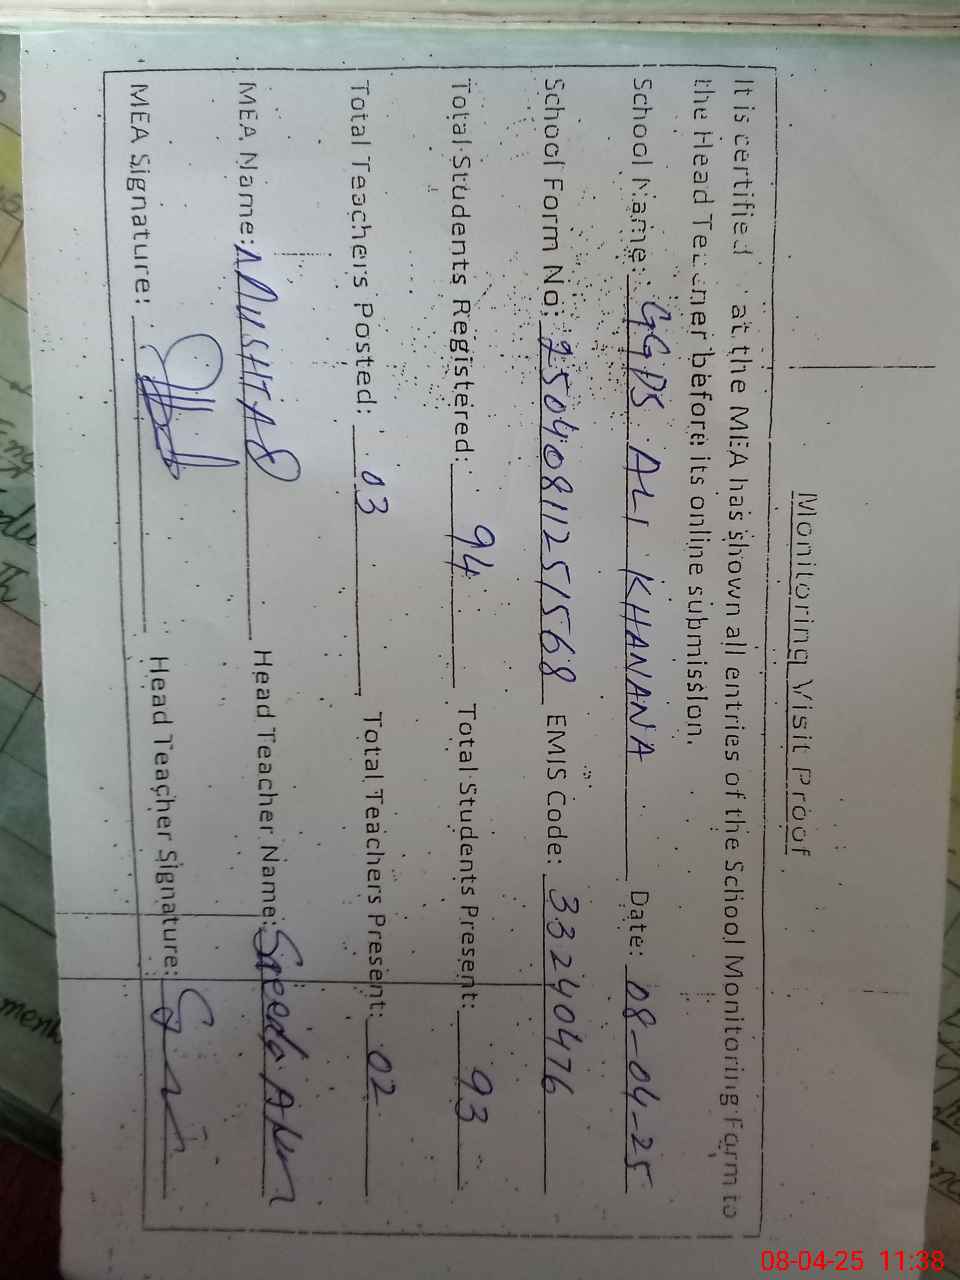 Monitoring Visit Proof
It is certified at the MEA has shown all entries of the School Monitoring Form to
the Head Teacher before its online submission.
School Name: GGPS ALI KHANANA Date: 08-04-25
School Form No: 25040811251568 EMIS Code: 33240476
Total Students Registered: 94 Total Students Present: 93
Total Teachers Posted: 03 Total Teachers Present: 02
MEA Name: MUSHTAQ Head Teacher Name: Saeeda
MEA Signature: Head Teacher Signature:
08-04-25 11:38